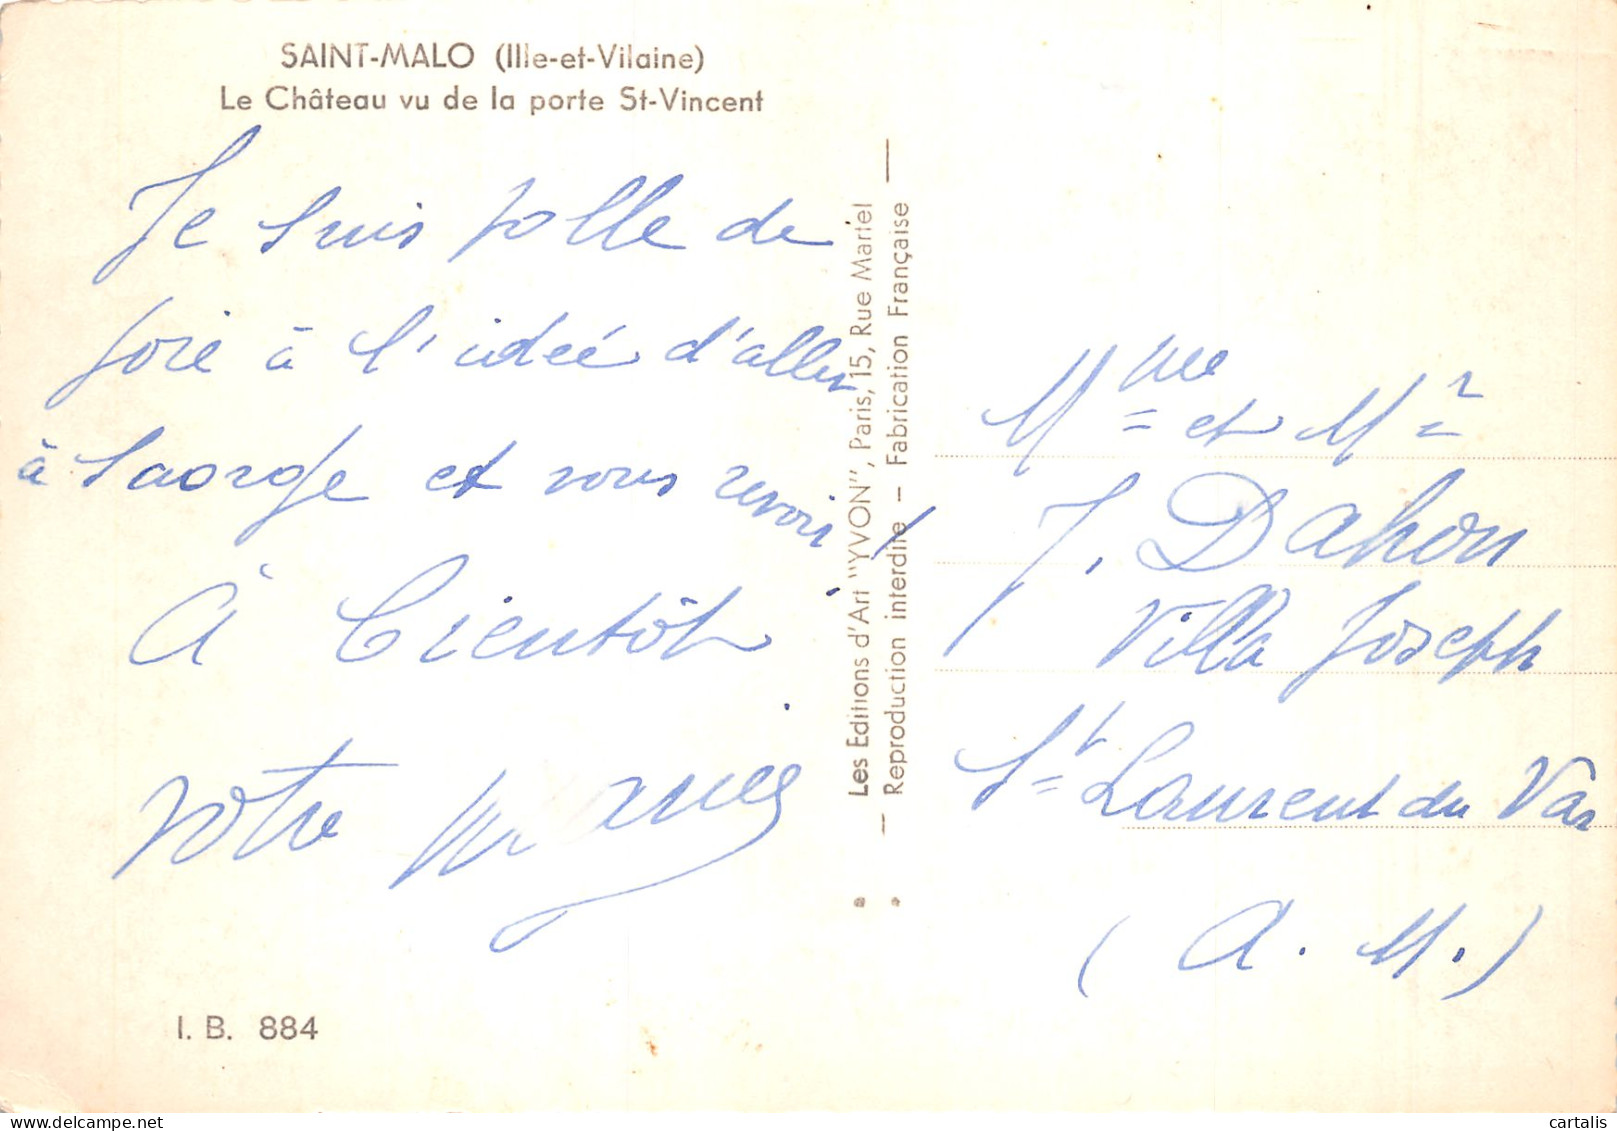 SAINT-MALO (Ille-et-Vilaine)
Le Château vu de la porte St-Vincent
Je suis folle de
joie à l'idée d'aller
à Saorge et vous revoir !
à bientôt
votre
I. B. 884
Les Editions d'Art "YVON", Paris, 15, Rue Martel
Reproduction interdite – Fabrication Française
Mme et Mr
J. Dahon
Villa Joseph
St Laurent du Var
(A. M.)
cartalis